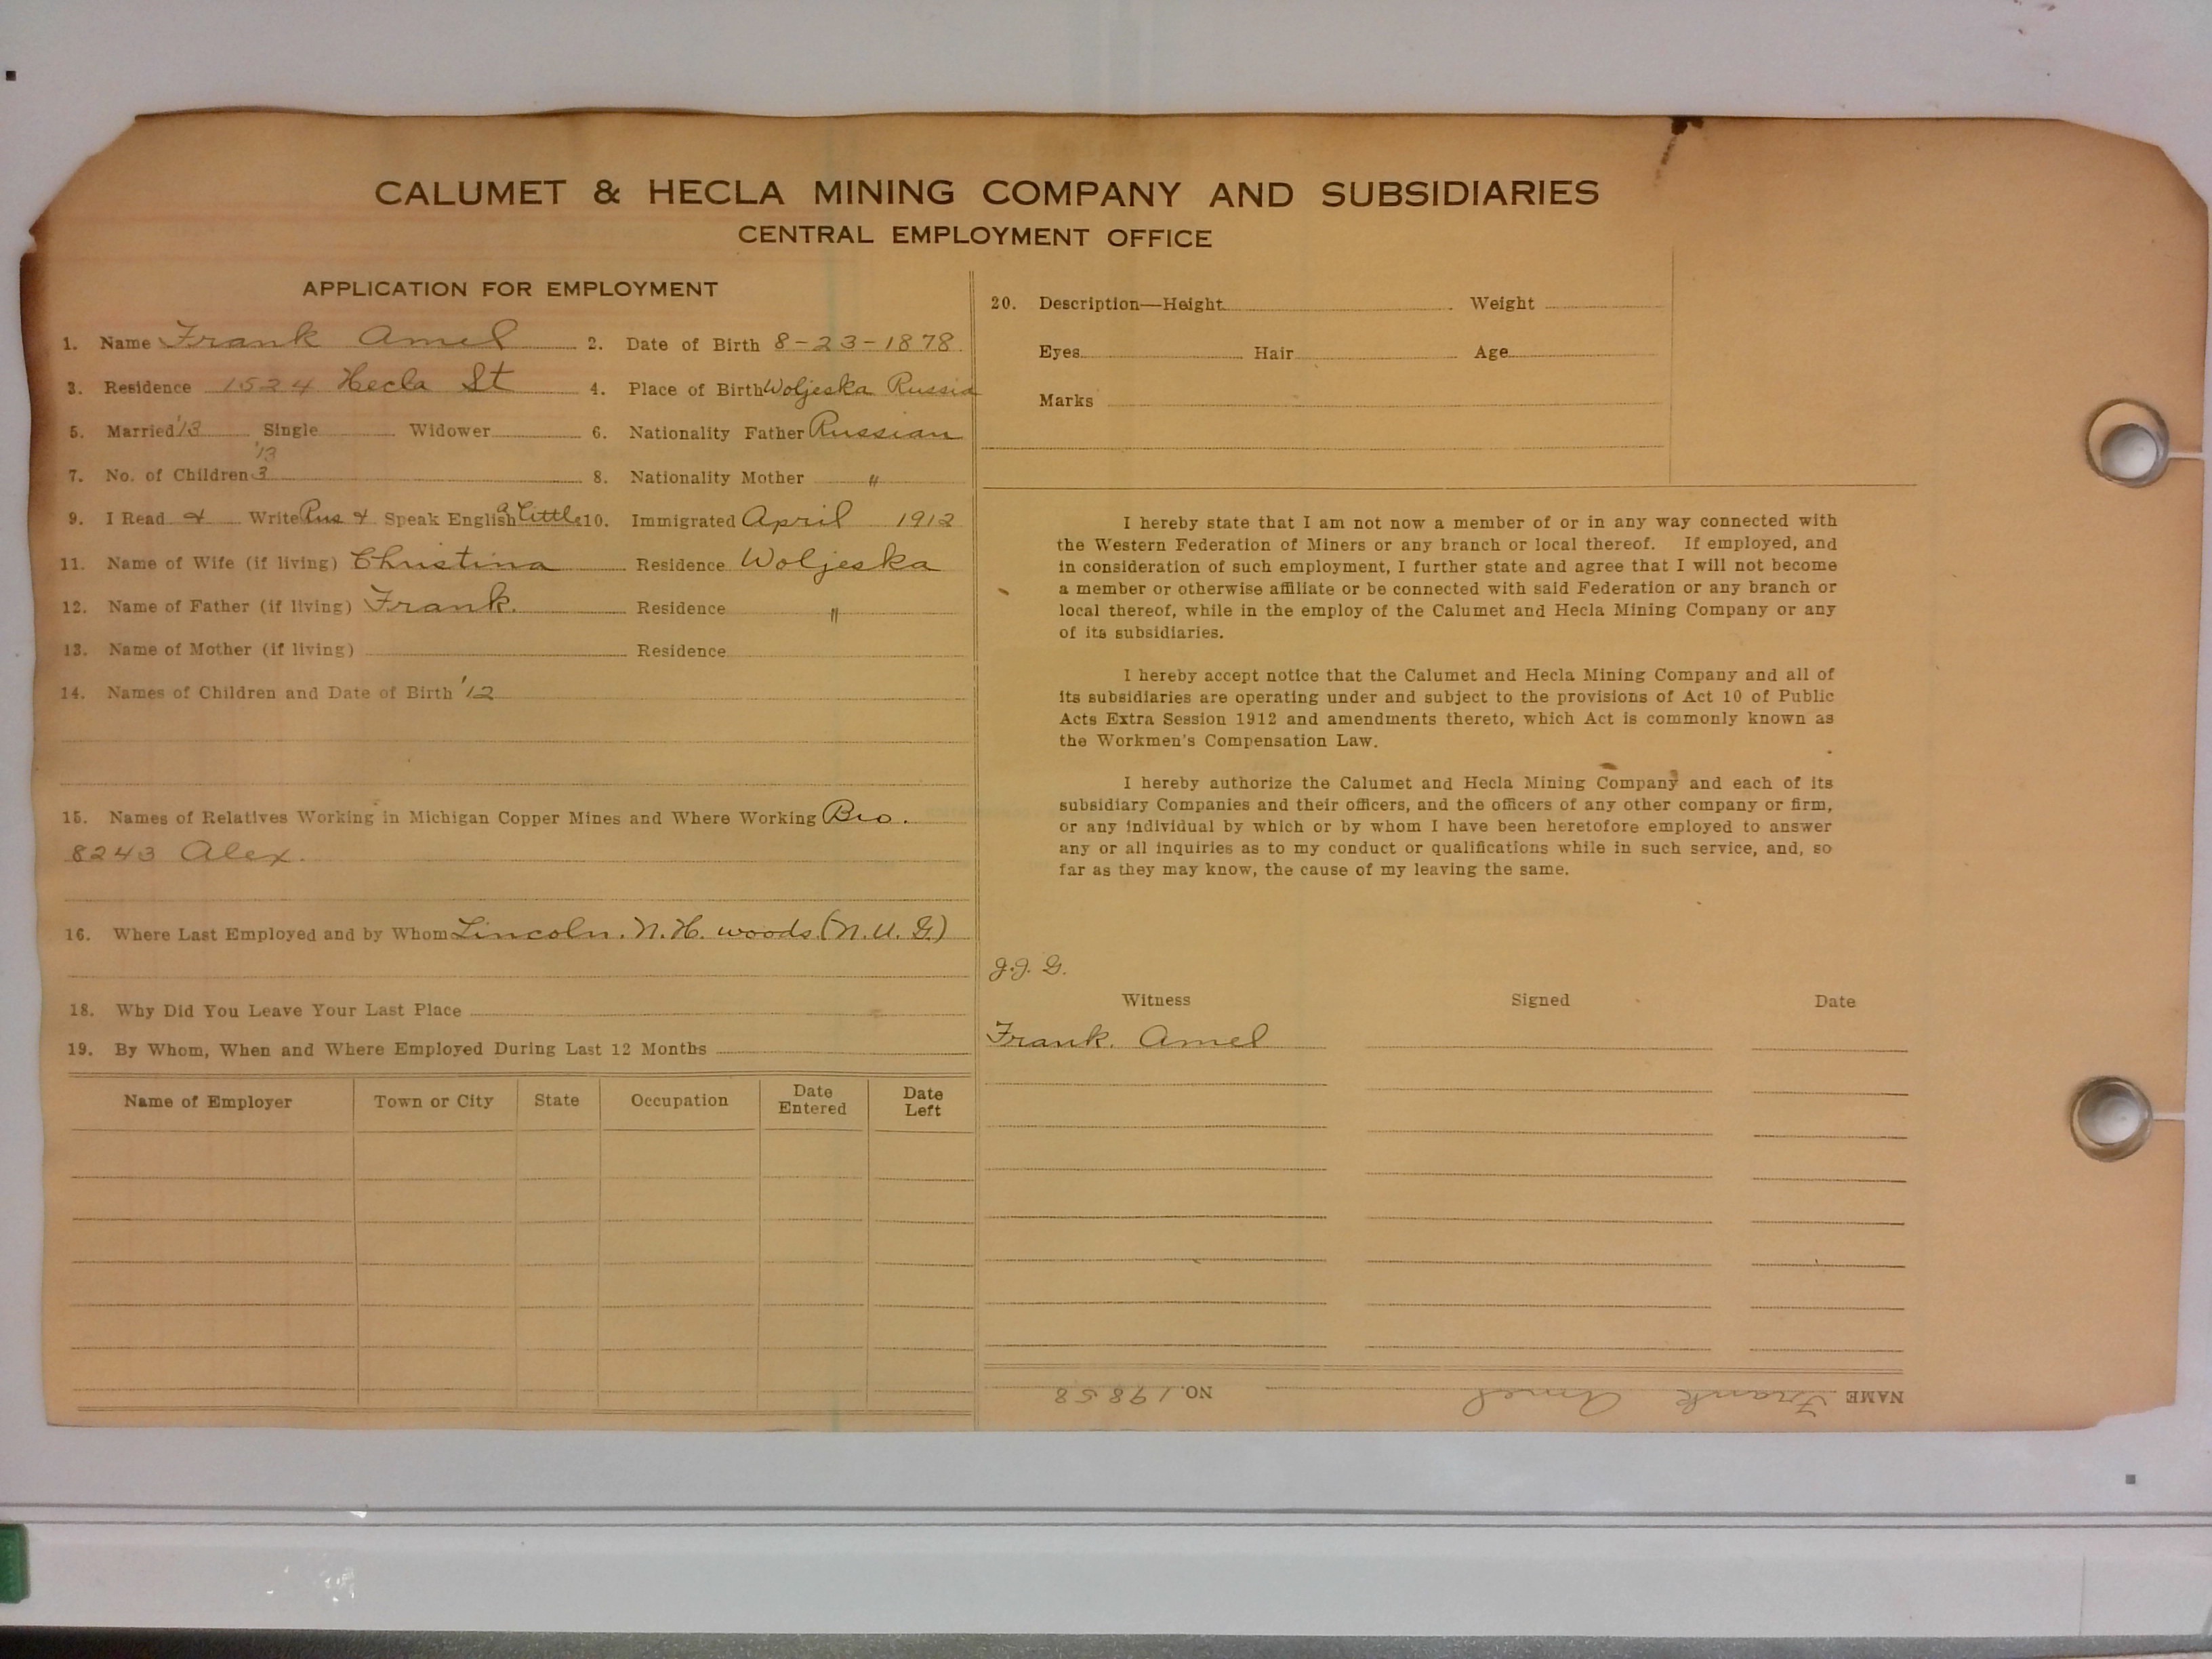 CALUMET & HECLA MINING COMPANY AND SUBSIDIARIES
CENTRAL EMPLOYMENT OFFICE
APPLICATION FOR EMPLOYMENT
1. Name Frank Amel 2. Date of Birth 8-23-1878
3. Residence 1524 Hecla St 4. Place of Birth Woljeska Russia
5. Married '13 Single Widower 6. Nationality Father Russian
'13
7. No. of Children 3 8. Nationality Mother "
9. I Read & Write Rus & Speak English a little 10. Immigrated April 1912
11. Name of Wife (if living) Christina Residence Woljeska
12. Name of Father (if living) Frank. Residence "
13. Name of Mother (if living) Residence
14. Names of Children and Date of Birth '12
15. Names of Relatives Working in Michigan Copper Mines and Where Working Bro.
8243 Alex.
16. Where Last Employed and by Whom Lincoln. N.H. woods. (N.U.G.)
18. Why Did You Leave Your Last Place
19. By Whom, When and Where Employed During Last 12 Months
Name of Employer Town or City State Occupation Date Entered Date Left
20. Description—Height Weight
Eyes Hair Age
Marks
I hereby state that I am not now a member of or in any way connected with
the Western Federation of Miners or any branch or local thereof. If employed, and
in consideration of such employment, I further state and agree that I will not become
a member or otherwise affiliate or be connected with said Federation or any branch or
local thereof, while in the employ of the Calumet and Hecla Mining Company or any
of its subsidiaries.
I hereby accept notice that the Calumet and Hecla Mining Company and all of
its subsidiaries are operating under and subject to the provisions of Act 10 of Public
Acts Extra Session 1912 and amendments thereto, which Act is commonly known as
the Workmen's Compensation Law.
I hereby authorize the Calumet and Hecla Mining Company and each of its
subsidiary Companies and their officers, and the officers of any other company or firm,
or any individual by which or by whom I have been heretofore employed to answer
any or all inquiries as to my conduct or qualifications while in such service, and, so
far as they may know, the cause of my leaving the same.
J.J. G.
Witness Signed Date
Frank. Amel
NAME Frank Amel NO. 19858